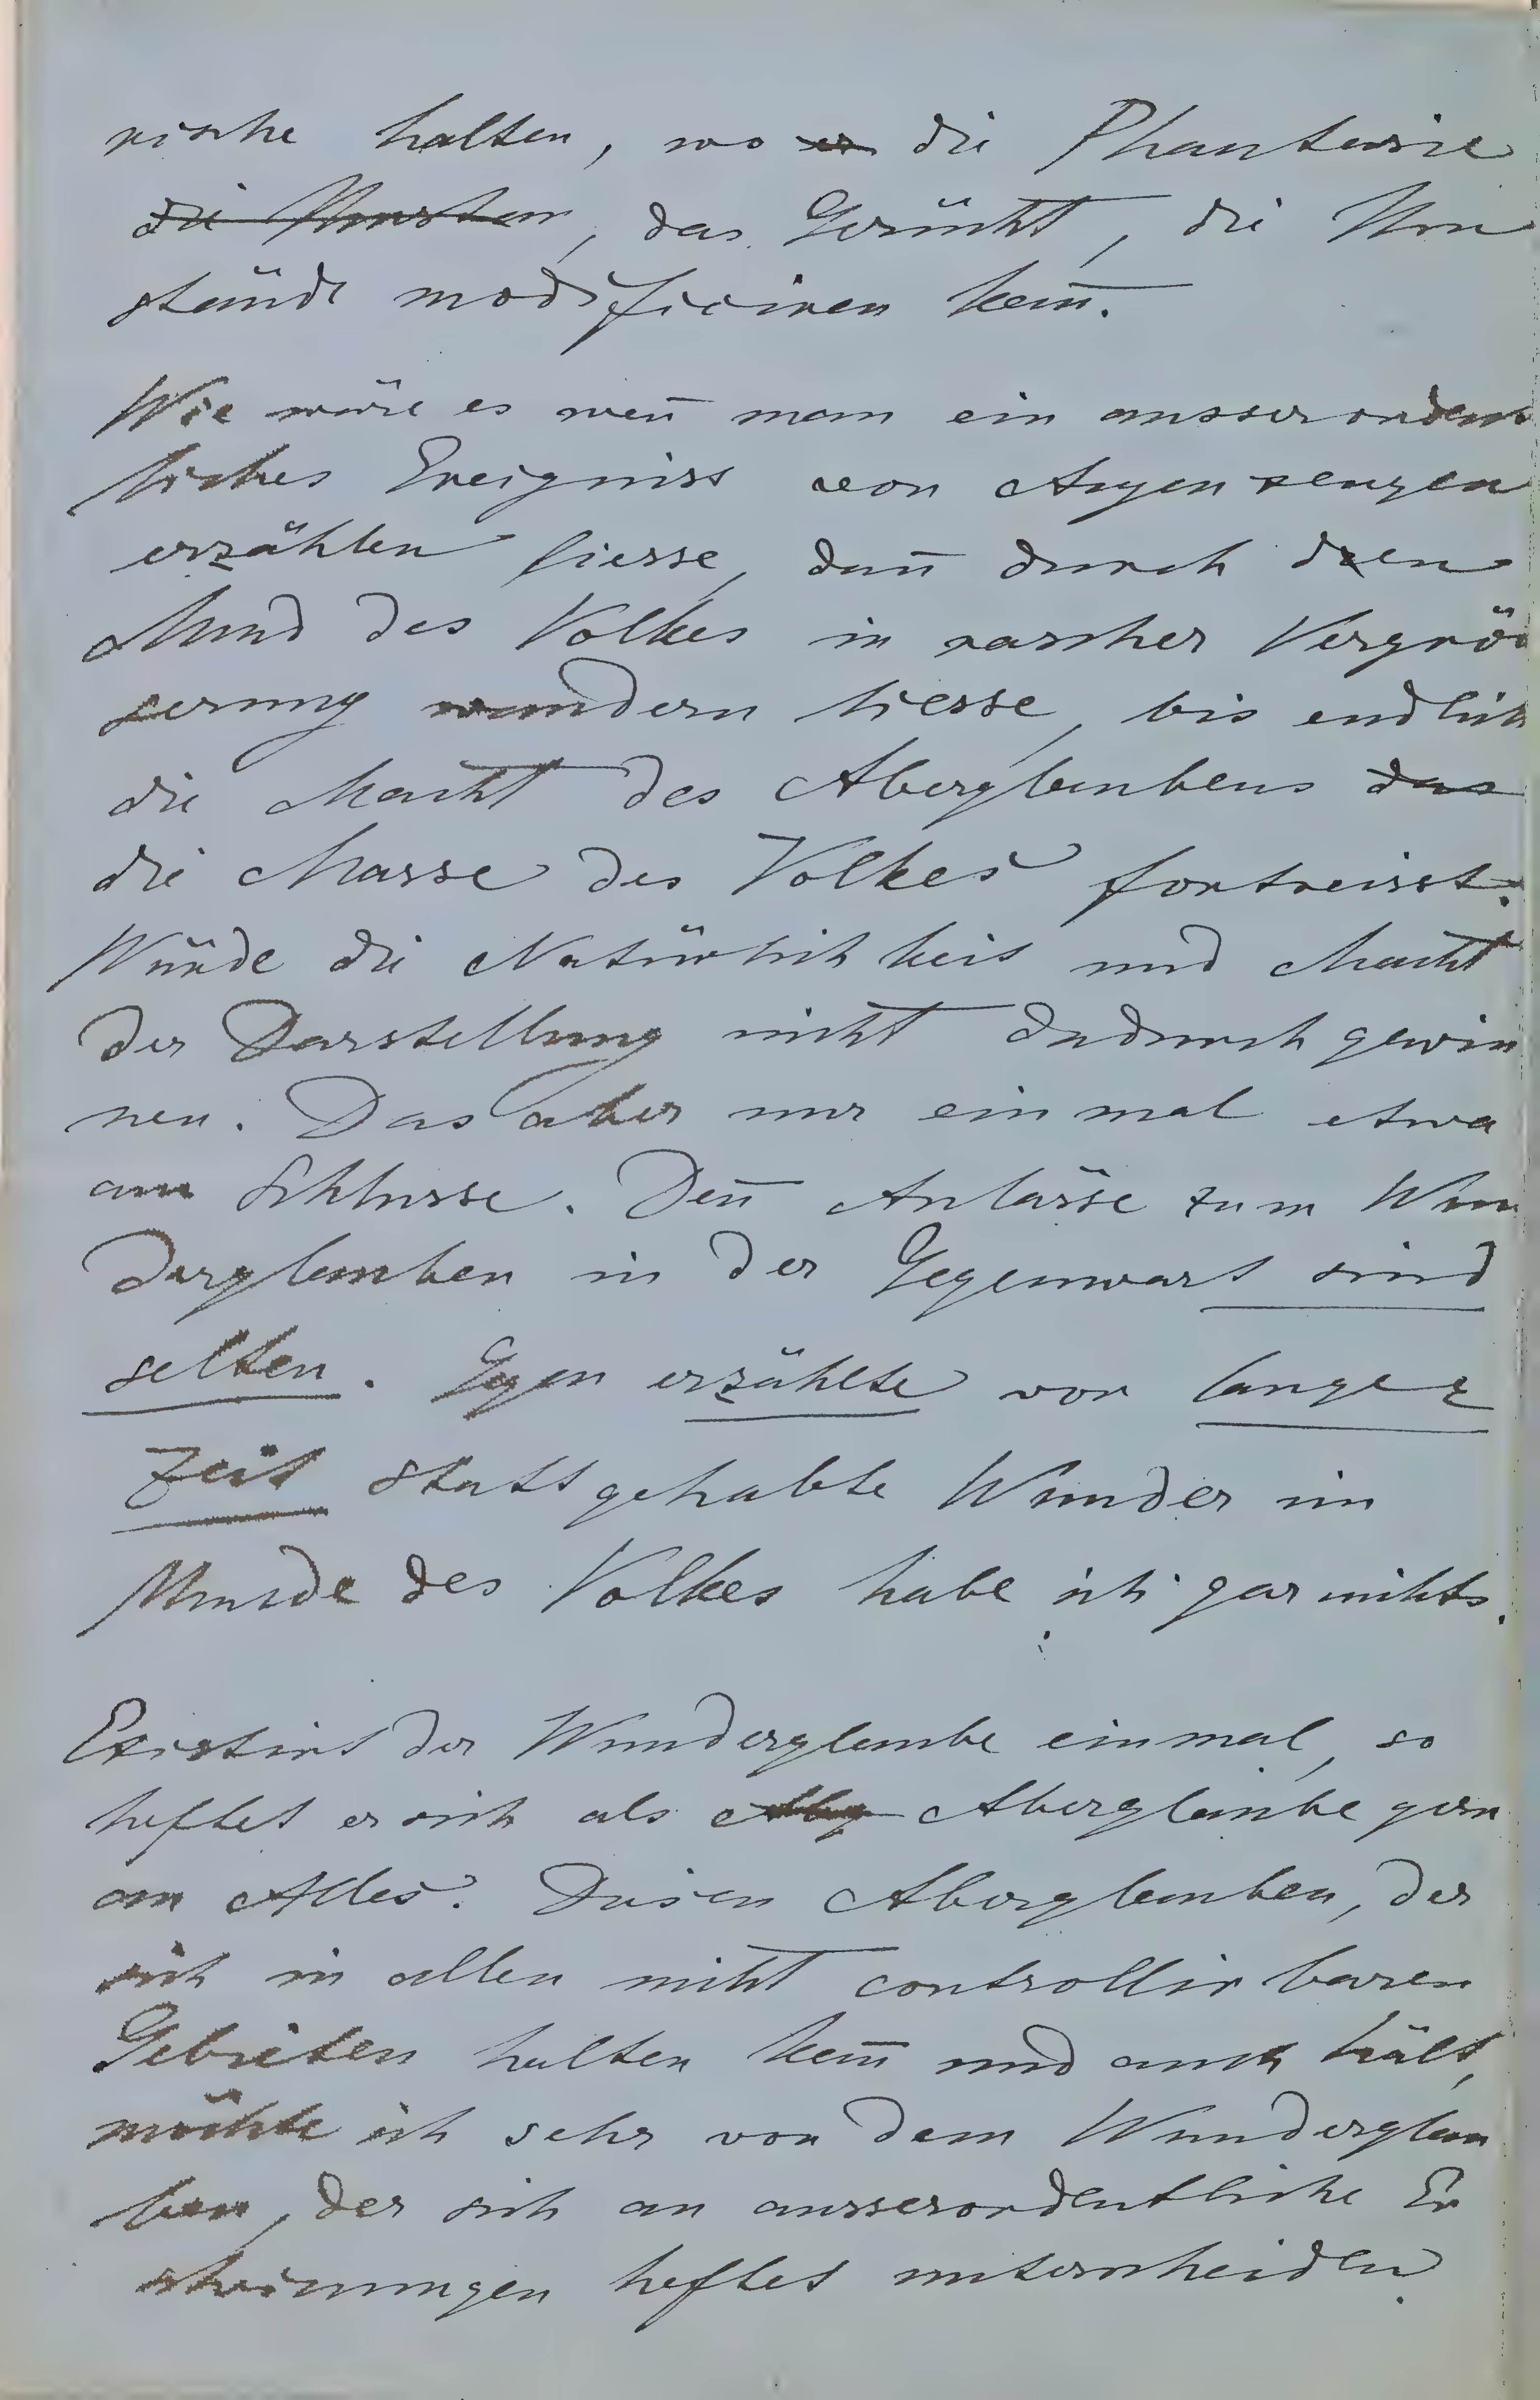 rische halten, wo er die Phantasie
die Umstän, das Gerücht, die Um
stände modificiren kañ.
Wie wäre es weñ man ein ausserordent
liches Ereigniss von Augenzeugen
erzählen liesse, dañ durch den
Mund des Volkes in rascher Vergrös
serung wandern liesse, bis endlich
die Macht des Aberglaubens das
die Masse des Volkes fortreisst.
Würde die Natürlichkeit und Macht
der Darstellung nicht dadurch gewin
nen. Das aber nur einmal etwa
am Schlusse. Deñ Anlässe zum Wun
derglauben in der Gegenwart sind
selten. Gegen erzählte vor langer
Zeit stattgehabte Wunder im
Munde des Volkes habe ich gar nichts.
Existirt der Wunderglaube einmal, so
heftet er sich als Abg Aberglaube gern
an Alles. Diesen Aberglauben, der
sich in allen nicht controllirbaren
Gebieten halten kañ und auch hält,
möchte ich sehr von dem Wunderglau
ben, der sich an ausserordentliche Er
scheinungen heftet unterscheiden.